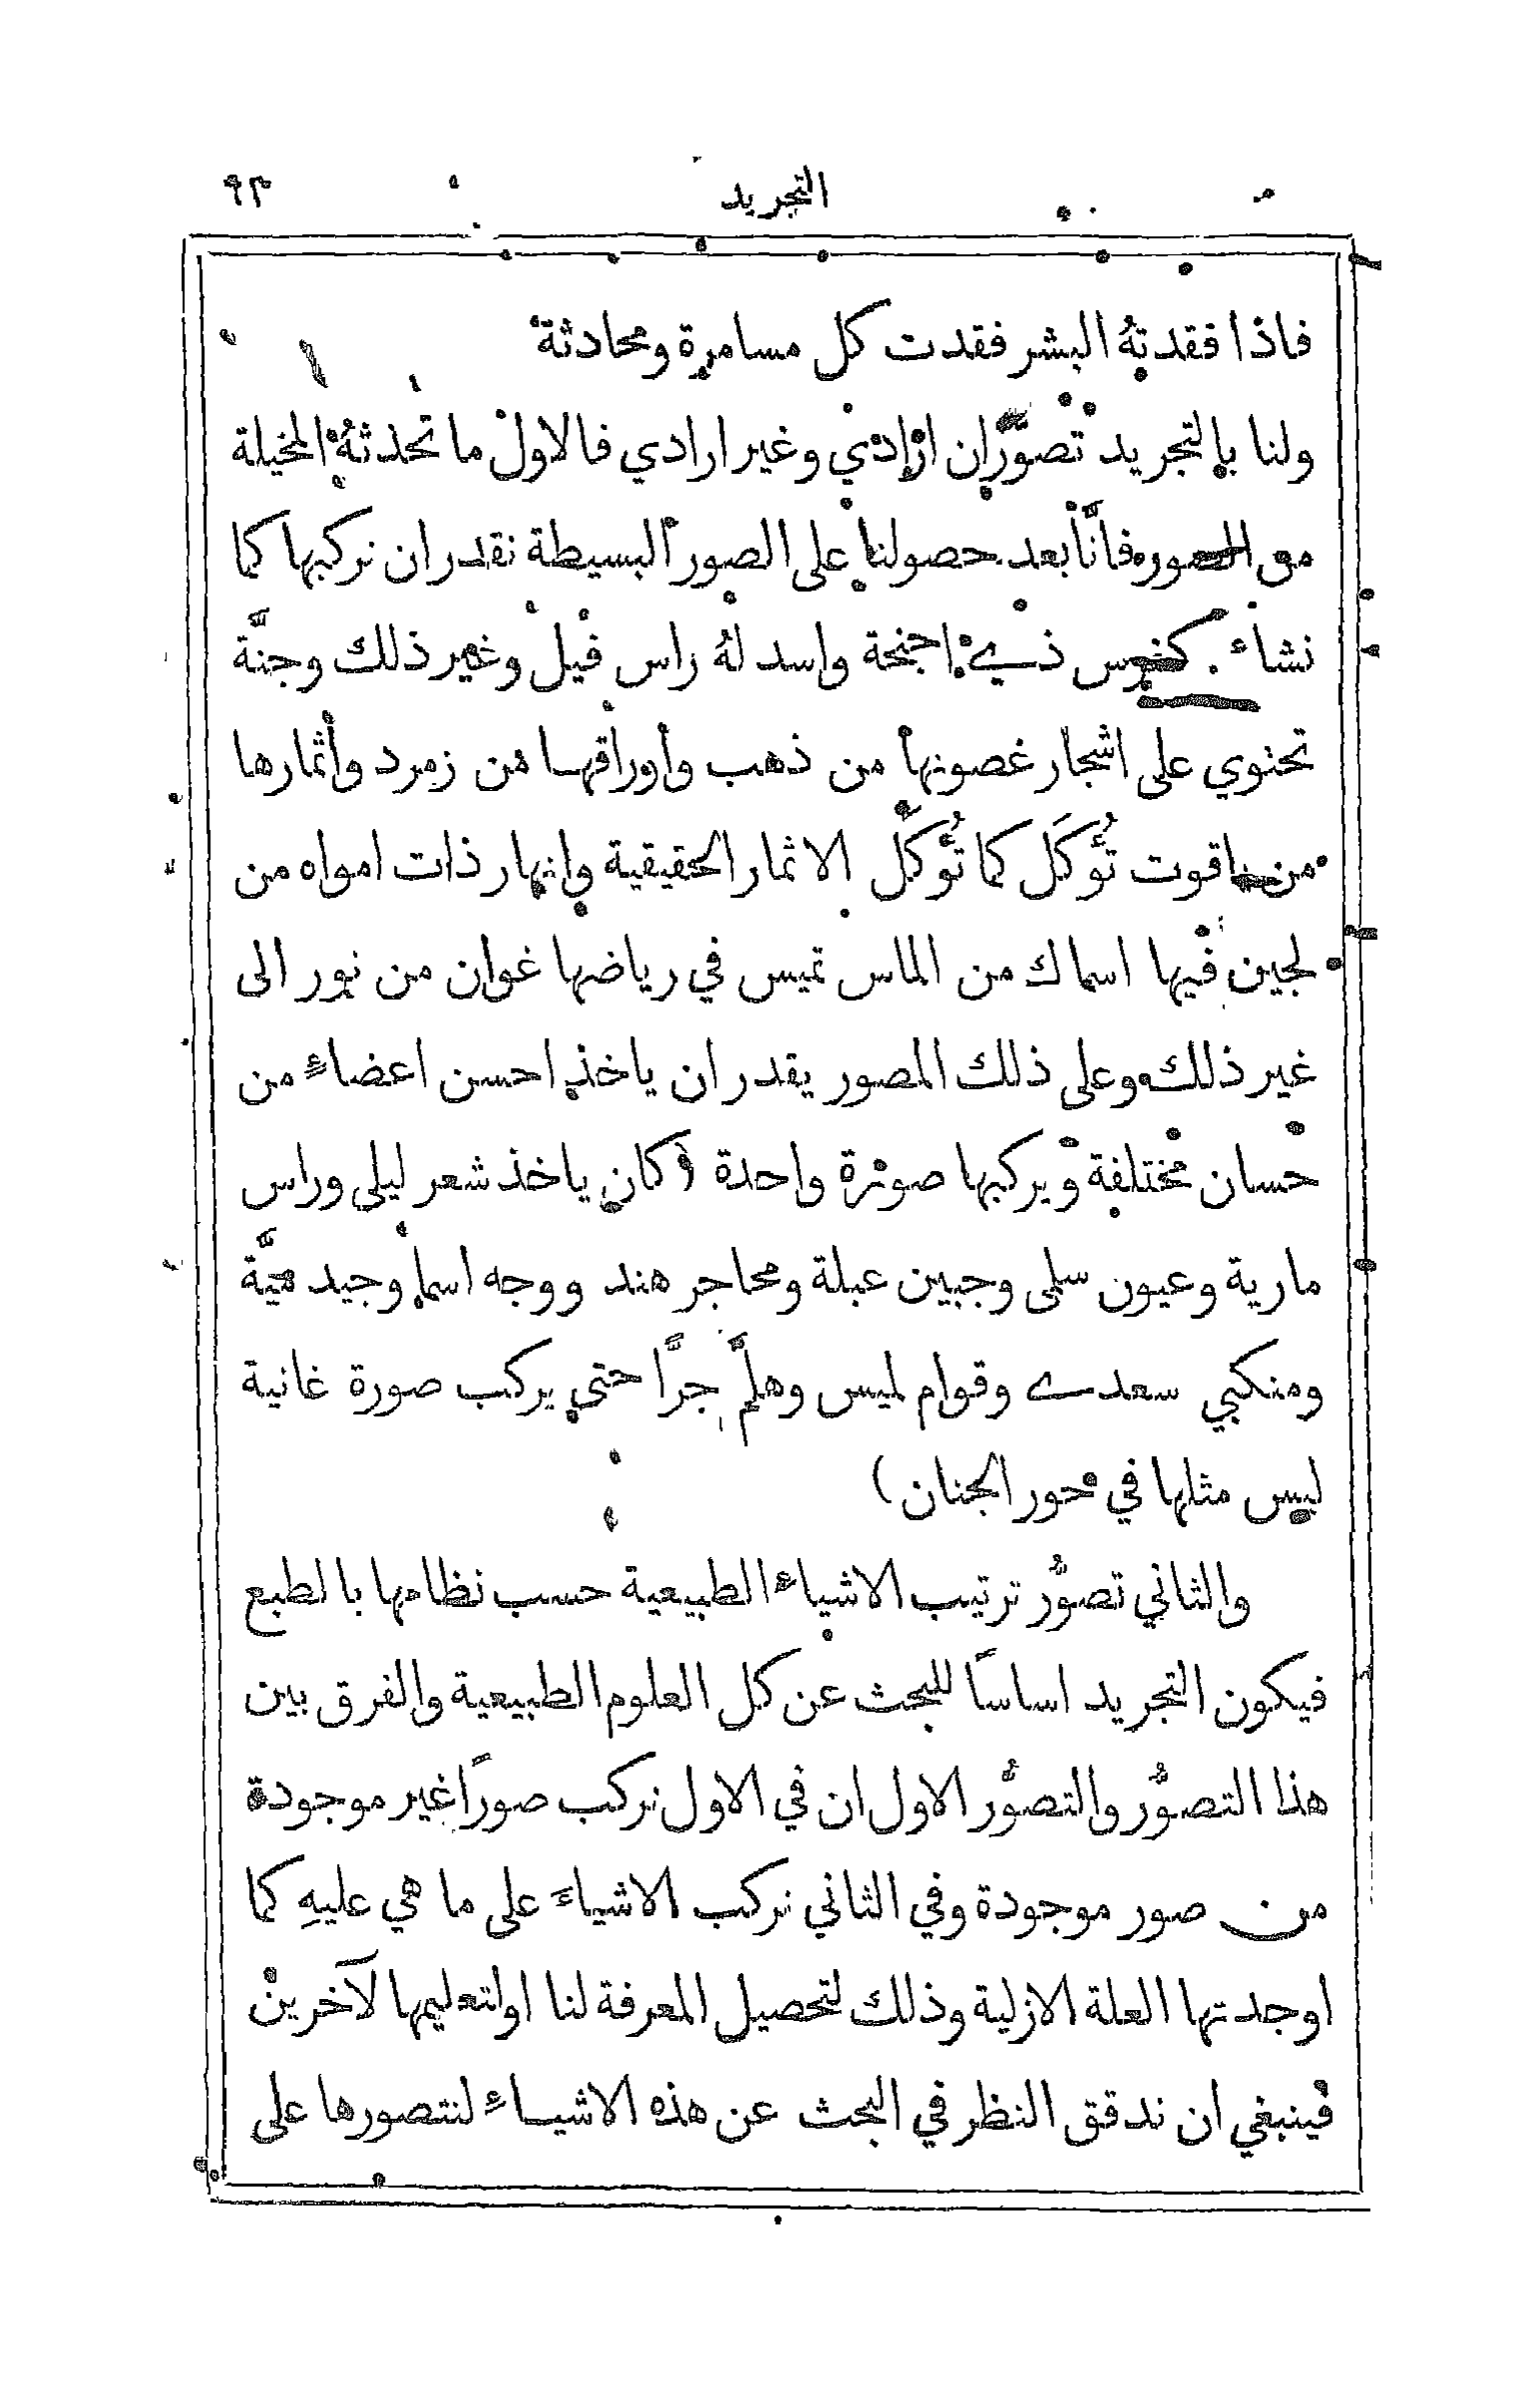 التجريد ٩٣
فاذا فقدتهُ البشر فقدت كل مسامرة ومحادثة
ولنا بالتجريد تصوّران ارادي وغير ارادي فالاول ما تحدثهُ المخيلة
من الصور فانَّا بعد حصولنا على الصور البسيطة نقدر ان نركبها كما
نشاء . كفرس ذي اجنحة واسد لهُ راس فيل وغير ذلك وجنَّة
تحتوي على اشجار غصونها من ذهب وأوراقها من زمرد وأثمارها
من ياقوت تُؤكَل كما تُؤكَل الاثمار الحقيقية وانهار ذات امواه من
لجين فيها اسماك من الماس تميس في رياضها غوان من نور الى
غير ذلك وعلى ذلك المصور يقدر ان ياخذ احسن اعضاءٍ من
حسان مختلفة ويركبها صورة واحدة (كان ياخذ شعر ليلى وراس
مارية وعيون سلمى وجبين عبلة ومحاجر هند ووجه اسما وجيد ميَّة
ومنكبي سعدى وقوام لميس وهلمَّ جرًّا حتى يركب صورة غانية
ليس مثلها في حور الجنان)
والثاني تصوُّر ترتيب الاشياء الطبيعية حسب نظامها بالطبع
فيكون التجريد اساسًا للبحث عن كل العلوم الطبيعية والفرق بين
هذا التصوُّر والتصوُّر الاول ان في الاول نركب صورًا غير موجودة
من صور موجودة وفي الثاني نركب الاشياءَ على ما هي عليهِ كما
اوجدتها العلة الازلية وذلك لتحصيل المعرفة لنا او لتعليمها لآخرين
فينبغي ان ندقق النظر في البحث عن هذه الاشياءِ لنتصورها على